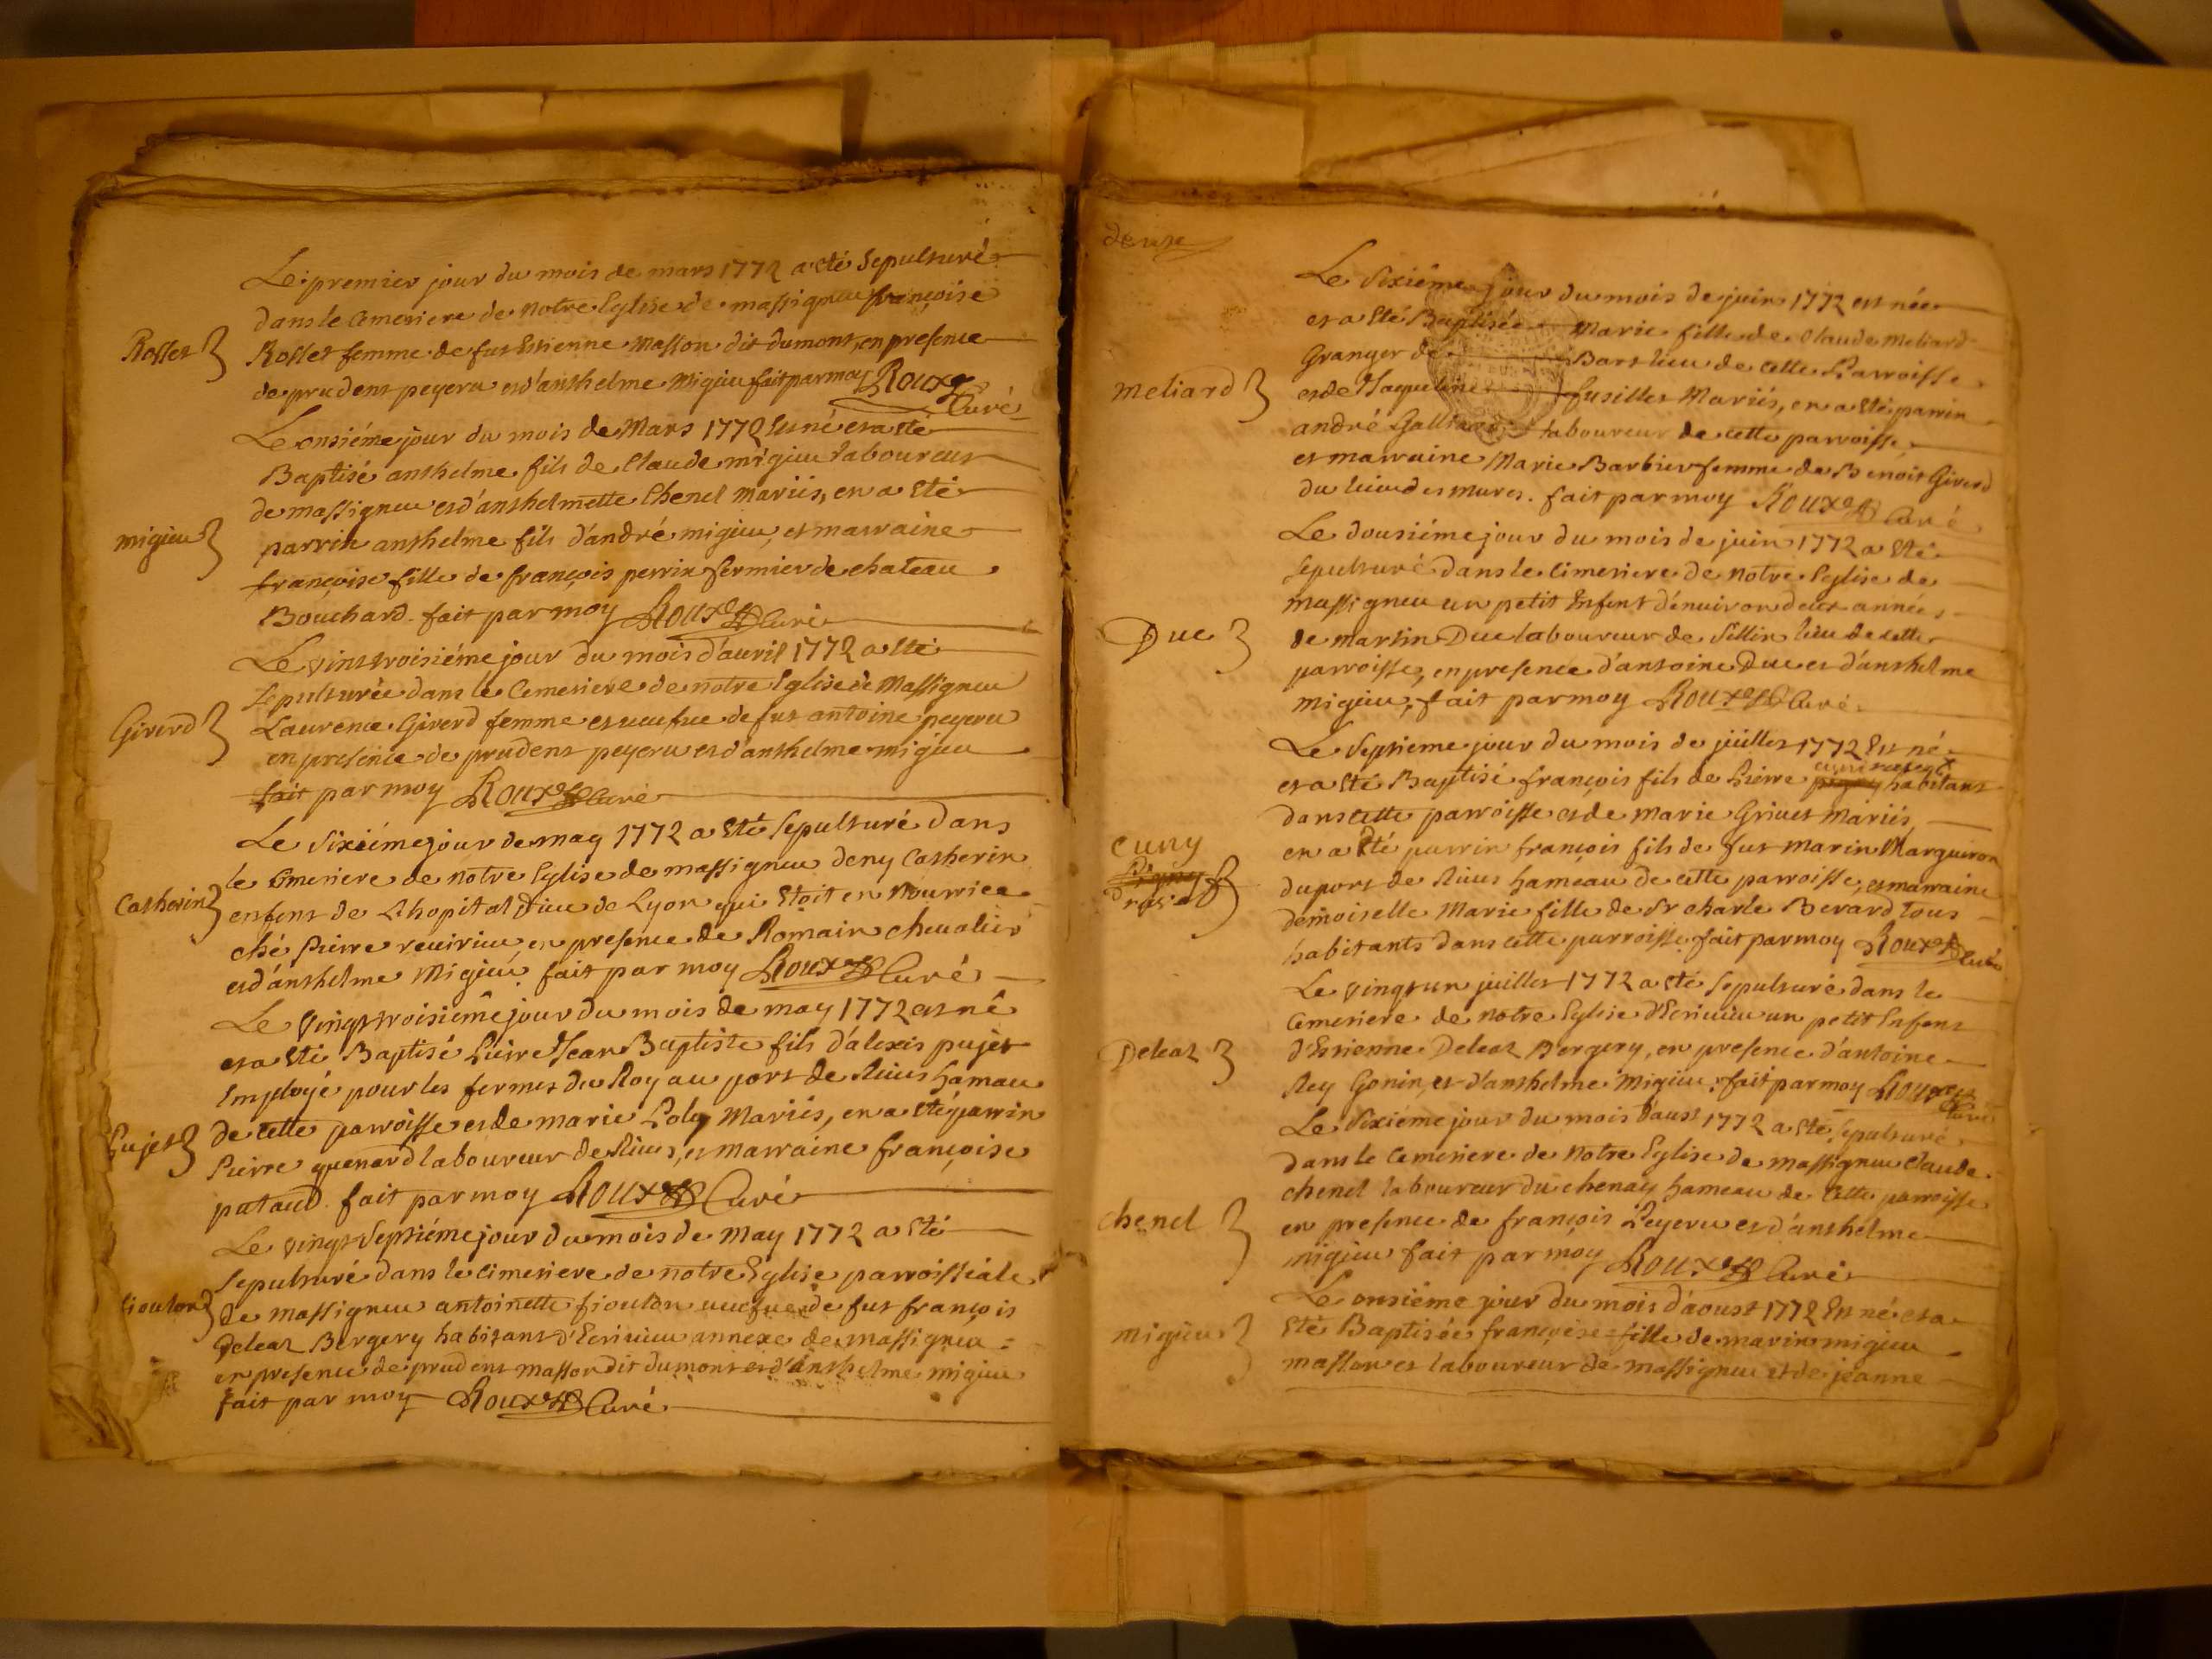 Le premier jour du mois de mars 1772 a eté sepulturé
dans le cemetiere de notre Eglise de massigneu françoise
Rosset
Rosset femme de fut Estienne Masson dit dumont, en presence
de prudent peyeru et d'anthelme Migieu fait par moy Roux
Curé
Le onsiéme jour du mois de Mars 1772 Est né et a eté
Baptisé anthelme fils de Claude migieu laboureur
de massigneu et d'anthelmette Chenel mariés, en a eté
migieu
parrin anthelme fils d'andré migieu, et marraine
françoise fille de françois perrin fermier de chateau
Bouchard. fait par moy Roux Curé
Le vint troisiéme jour du mois d'avril 1772 a eté
sepulturée dans le Cemetiere de notre Eglise de Massigneu
Girerd
Laurence Girerd femme et veufve de fut antoine peyeru
en presence de prudent peyeru et d'anthelme migieu
fait par moy Roux Curé
Le sixiéme jour de may 1772 a eté sepulturé dans
le Cimetiere de notre Eglise de massigneu deny Catherin
Catherin
enfent de L'hopital Dieu de Lyon qui etoit en nourrice
ché Pierre revirieu, en presence de Romain chevalier
et d'anthelme Migieu fait par moy Roux Curé
Le vingt troisiéme jour du mois de may 1772 est né
et a eté Baptisé Pierre Jean Baptiste fils d'alexis pujet
Employé pour les fermes du Roy au port de Rives hameau
Pujet
de cette parroisse et de marie Loly Mariés, en a eté parrin
Pierre quenard laboureur de Rives, et marraine françoise
pataud. fait par moy Roux Curé
Le vingt septiéme jour du mois de May 1772 a eté
sepulturé dans le cimetiere de notre Eglise parroissiale
fioulon
de massigneu antoinette fioulon veufve de fut françois
Deleaz Bergery habitant d'Ecrivieu annexe de massigneu
en presence de prudent masson dit dumont et d'anthelme migieu
fait par moy Roux Curé
Le sixiéme jour du mois de juin 1772 est née
et a eté Baptisée Marie fille de Claude Meliard
Granger de Bart lieu de cette Parroisse
meliard
et de Jaqueline fusillet Mariés, en a eté parrin
andré Galliard laboureur de cette parroisse
et marraine Marie Barbier femme de Benoit Girerd
du lieu des mures. fait par moy Roux Curé
Le dousiéme jour du mois de juin 1772 a eté
sepulturé dans le cimetiere de notre Eglise de
massigneu un petit Enfent d'enuiron deux années
Duc
de martin Duc laboureur de Sillin lieu de cette
parroisse, en presence d'antoine Duc et d'anthelme
migieu, fait par moy Roux Curé
Le septieme jour du mois de juillet 1772 Est né
et a eté Baptisé françois fils de Pierre habitant
dans cette parroisse et de marie Grivet mariés
cuny
en a eté parrin françois fils de fut marin Marguiron
du port de Rives hameau de cette parroisse, et marraine
demoiselle Marie fille de Sr charle Berard tous
habitants dans cette parroisse fait par moy Roux Curé
Le vingt un juillet 1772 a eté sepulturé dans le
Cemetiere de notre Eglise d'Ecrivieu un petit Enfent
Deleaz
d'Estienne Deleaz Bergery, en presence d'antoine
Rey Gonin, et d'anthelme Migieu fait par moy Roux
Curé
Le sixieme jour du mois d'aust 1772 a eté sepulturé
dans le cemetiere de notre Eglise de massigneu Claude
chenel laboureur du chenay hameau de cette parroisse
chenel
en presence de françois Peyeru et d'anthelme
migieu fait par moy Roux Curé
Le onsiéme jour du mois d'aoust 1772 Est né et a
migieu
eté Baptisée françoise fille de marin migieu
masson et laboureur de massigneu et de jeanne